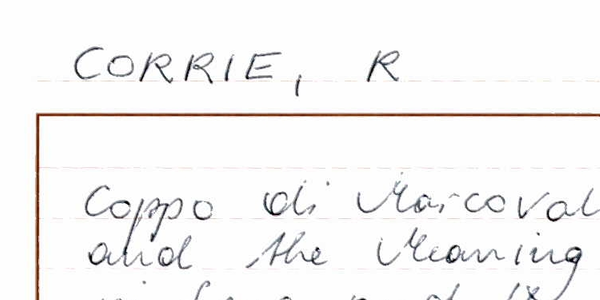 CORRIE, R
Coppo di Marcoval
and the Meaning